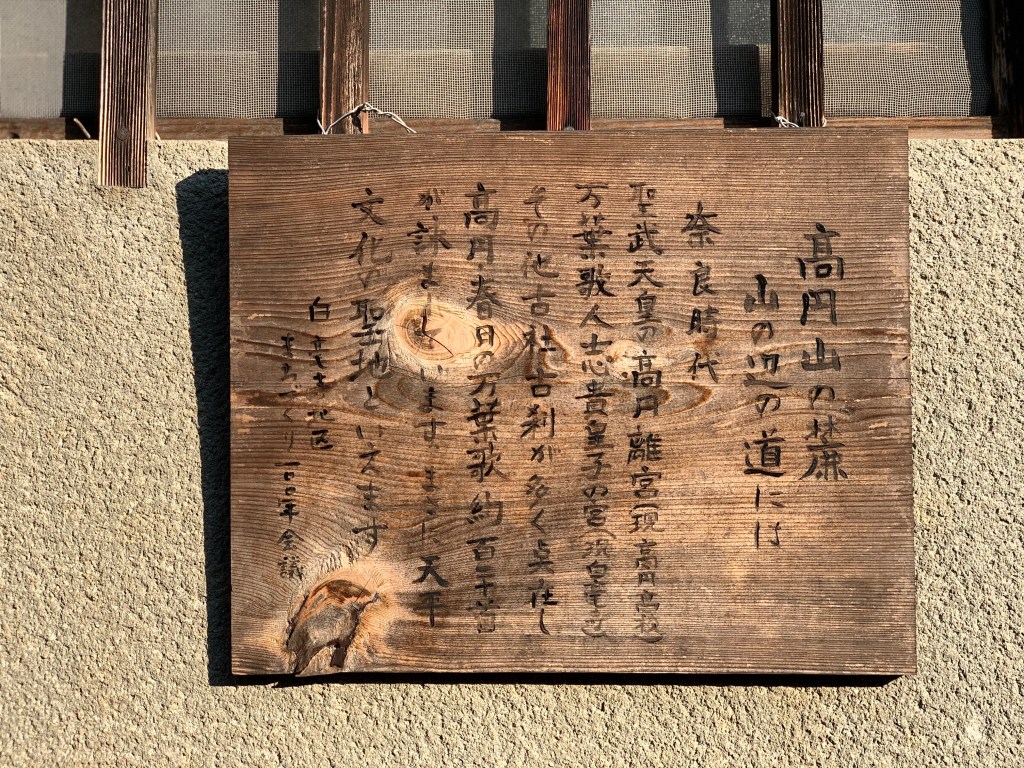 高円山の麓
山の辺の道には
奈良時代
聖武天皇の高円離宮(現高円高校)
万葉歌人志貴皇子の宮(現白毫寺)
その他古社古刹が多く点在し
高円・春日の万葉歌約百二十首
が詠まれています まさに天平
文化の聖地といえます
白毫寺地区
まちづくり一〇〇年会議